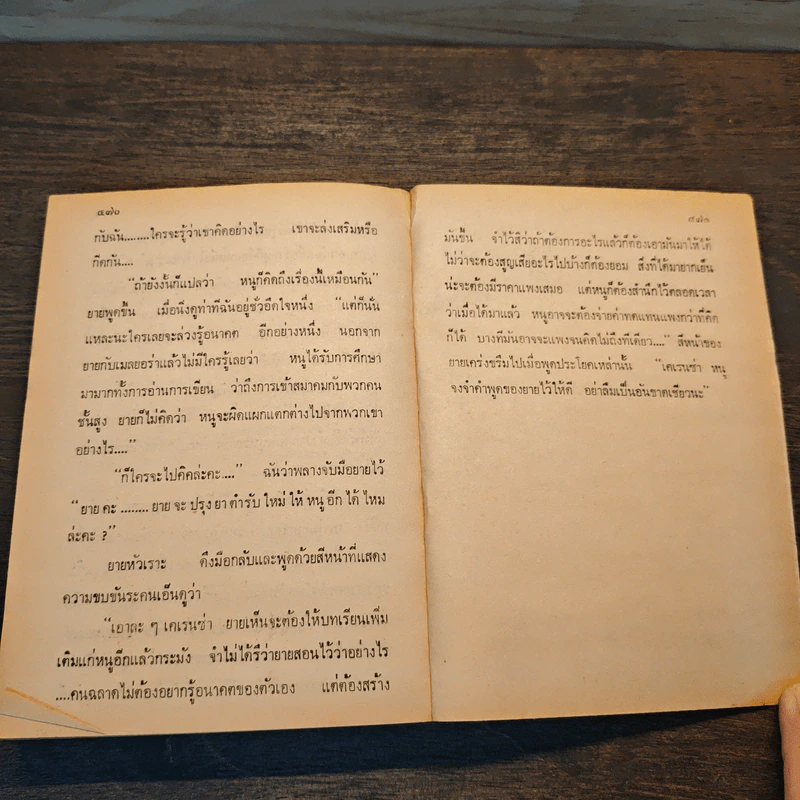 ๔๗๐
กับฉัน........ใครจะรู้ว่าเขาคิดอย่างไร เขาจะส่งเสริมหรือ
กีดกัน....
“ถ้ายังงั้นก็แปลว่า หนูก็คิดถึงเรื่องนี้เหมือนกัน”
ยายพูดขึ้น เมื่อนิ่งดูท่าทีฉันอยู่ชั่วอึดใจหนึ่ง “แต่ก็นั่น
แหละนะใครเลยจะล่วงรู้อนาคต อีกอย่างหนึ่ง นอกจาก
ยายกับเมลยอร่าแล้วไม่มีใครรู้เลยว่า หนูได้รับการศึกษา
มามากทั้งการอ่านการเขียน ว่าถึงการเข้าสมาคมกับพวกคน
ชั้นสูง ยายก็ไม่คิดว่า หนูจะผิดแผกแตกต่างไปจากพวกเขา
อย่างไร....”
“ก็ใครจะไปคิดล่ะคะ....” ฉันว่าพลางจับมือยายไว้
“ยาย คะ ........ ยาย จะ ปรุง ยา ตำรับ ใหม่ ให้ หนู อีก ได้ ไหม
ล่ะคะ ?”
ยายหัวเราะ ดึงมือกลับและพูดด้วยสีหน้าที่แสดง
ความขบขันระคนเอ็นดูว่า
“เอาละ ๆ เคเรนซ่า ยายเห็นจะต้องให้บทเรียนเพิ่ม
เติมแก่หนูอีกแล้วกระมัง จำไม่ได้รึว่ายายสอนไว้ว่าอย่างไร
....คนฉลาดไม่ต้องอยากรู้อนาคตของตัวเอง แต่ต้องสร้าง
มันขึ้น จำไว้สิว่าถ้าต้องการอะไรแล้วก็ต้องเอามันมาให้ได้
ไม่ว่าจะต้องสูญเสียอะไรไปบ้างก็ต้องยอม สิ่งที่ได้มายากเย็น
น่ะจะต้องมีราคาแพงเสมอ แต่หนูก็ต้องสำนึกไว้ตลอดเวลา
ว่าเมื่อได้มาแล้ว หนูอาจจะต้องจ่ายค่าทดแทนแพงกว่าที่คิด
ก็ได้ บางทีมันอาจจะแพงจนคิดไม่ถึงทีเดียว....” สีหน้าของ
ยายเคร่งขรึมไปเมื่อพูดประโยคเหล่านั้น “เคเรนซ่า หนู
จงจำคำพูดของยายไว้ให้ดี อย่าลืมเป็นอันขาดเชียวนะ”